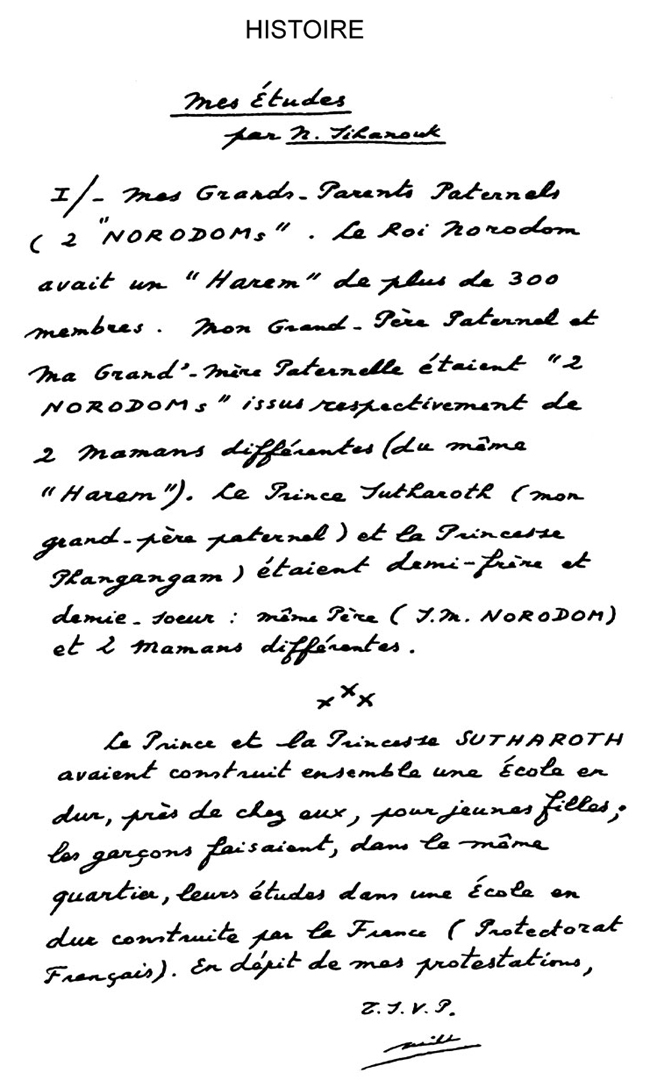 HISTOIRE
Mes Études
par N. Sihanouk
I/- Mes Grands-Parents Paternels
( 2 "NORODOMs" . Le Roi Norodom
avait un "Harem" de plus de 300
membres . Mon Grand-Père Paternel et
Ma Grand'-Mère Paternelle étaient "2
NORODOMs" issus respectivement de
2 Mamans différentes (du même
"Harem"). Le Prince Sutharoth (mon
grand-père paternel) et la Princesse
Phangangam) étaient demi-frère et
demie-soeur : même Père ( S.M. NORODOM)
et 2 Mamans différentes .
x x x
Le Prince et la Princesse SUTHAROTH
avaient construit ensemble une École en
dur, près de chez eux, pour jeunes filles ;
les garçons faisaient, dans le même
quartier, leurs études dans une École en
dur construite par la France ( Protectorat
Français). En dépit de mes protestations,
T.S.V.P.